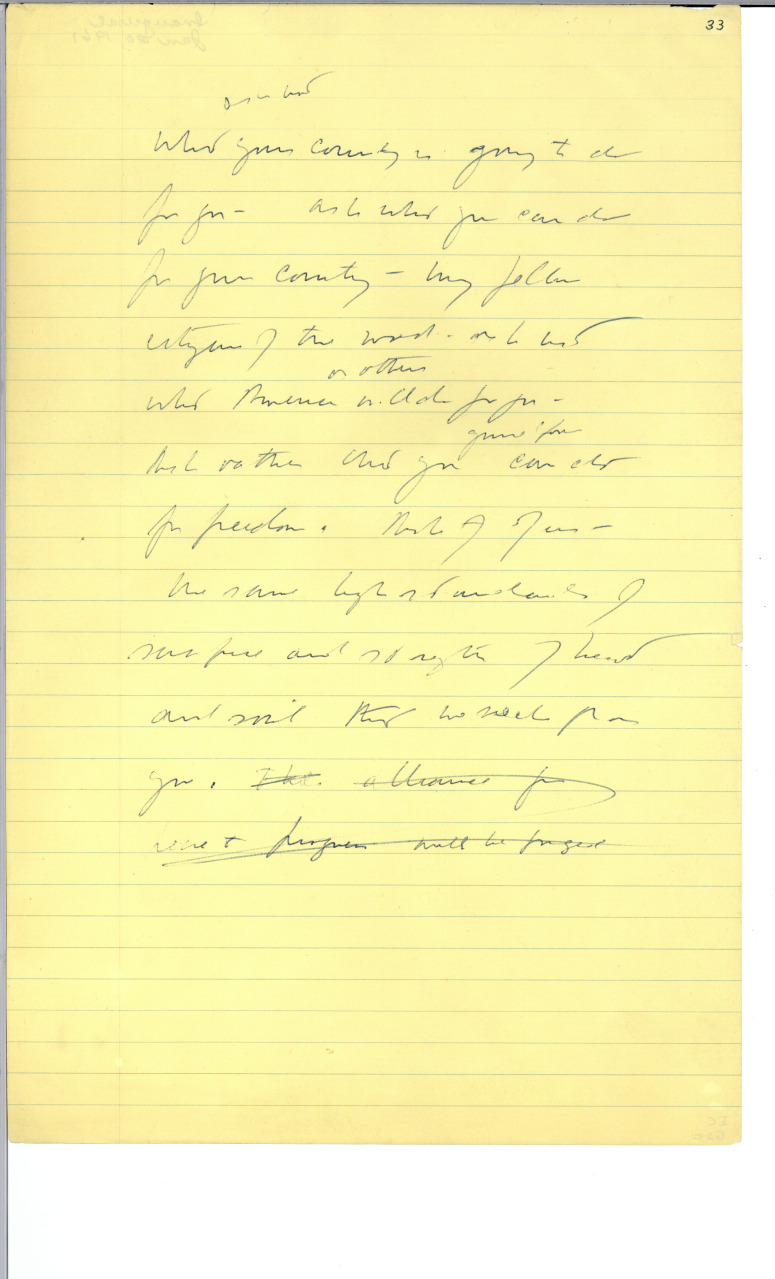 33
Inaugural
Jan 20, 1961
ask not
what your country is going to do
for you – ask what you can do
for your country – my fellow
citizens of the world – ask not
or others
what America will do for you –
Ask rather what you can do
for freedom. Ask of us –
the same high standards of
sacrifice and strength of heart
and will that we seek from
you. The alliance for
progress will be forged